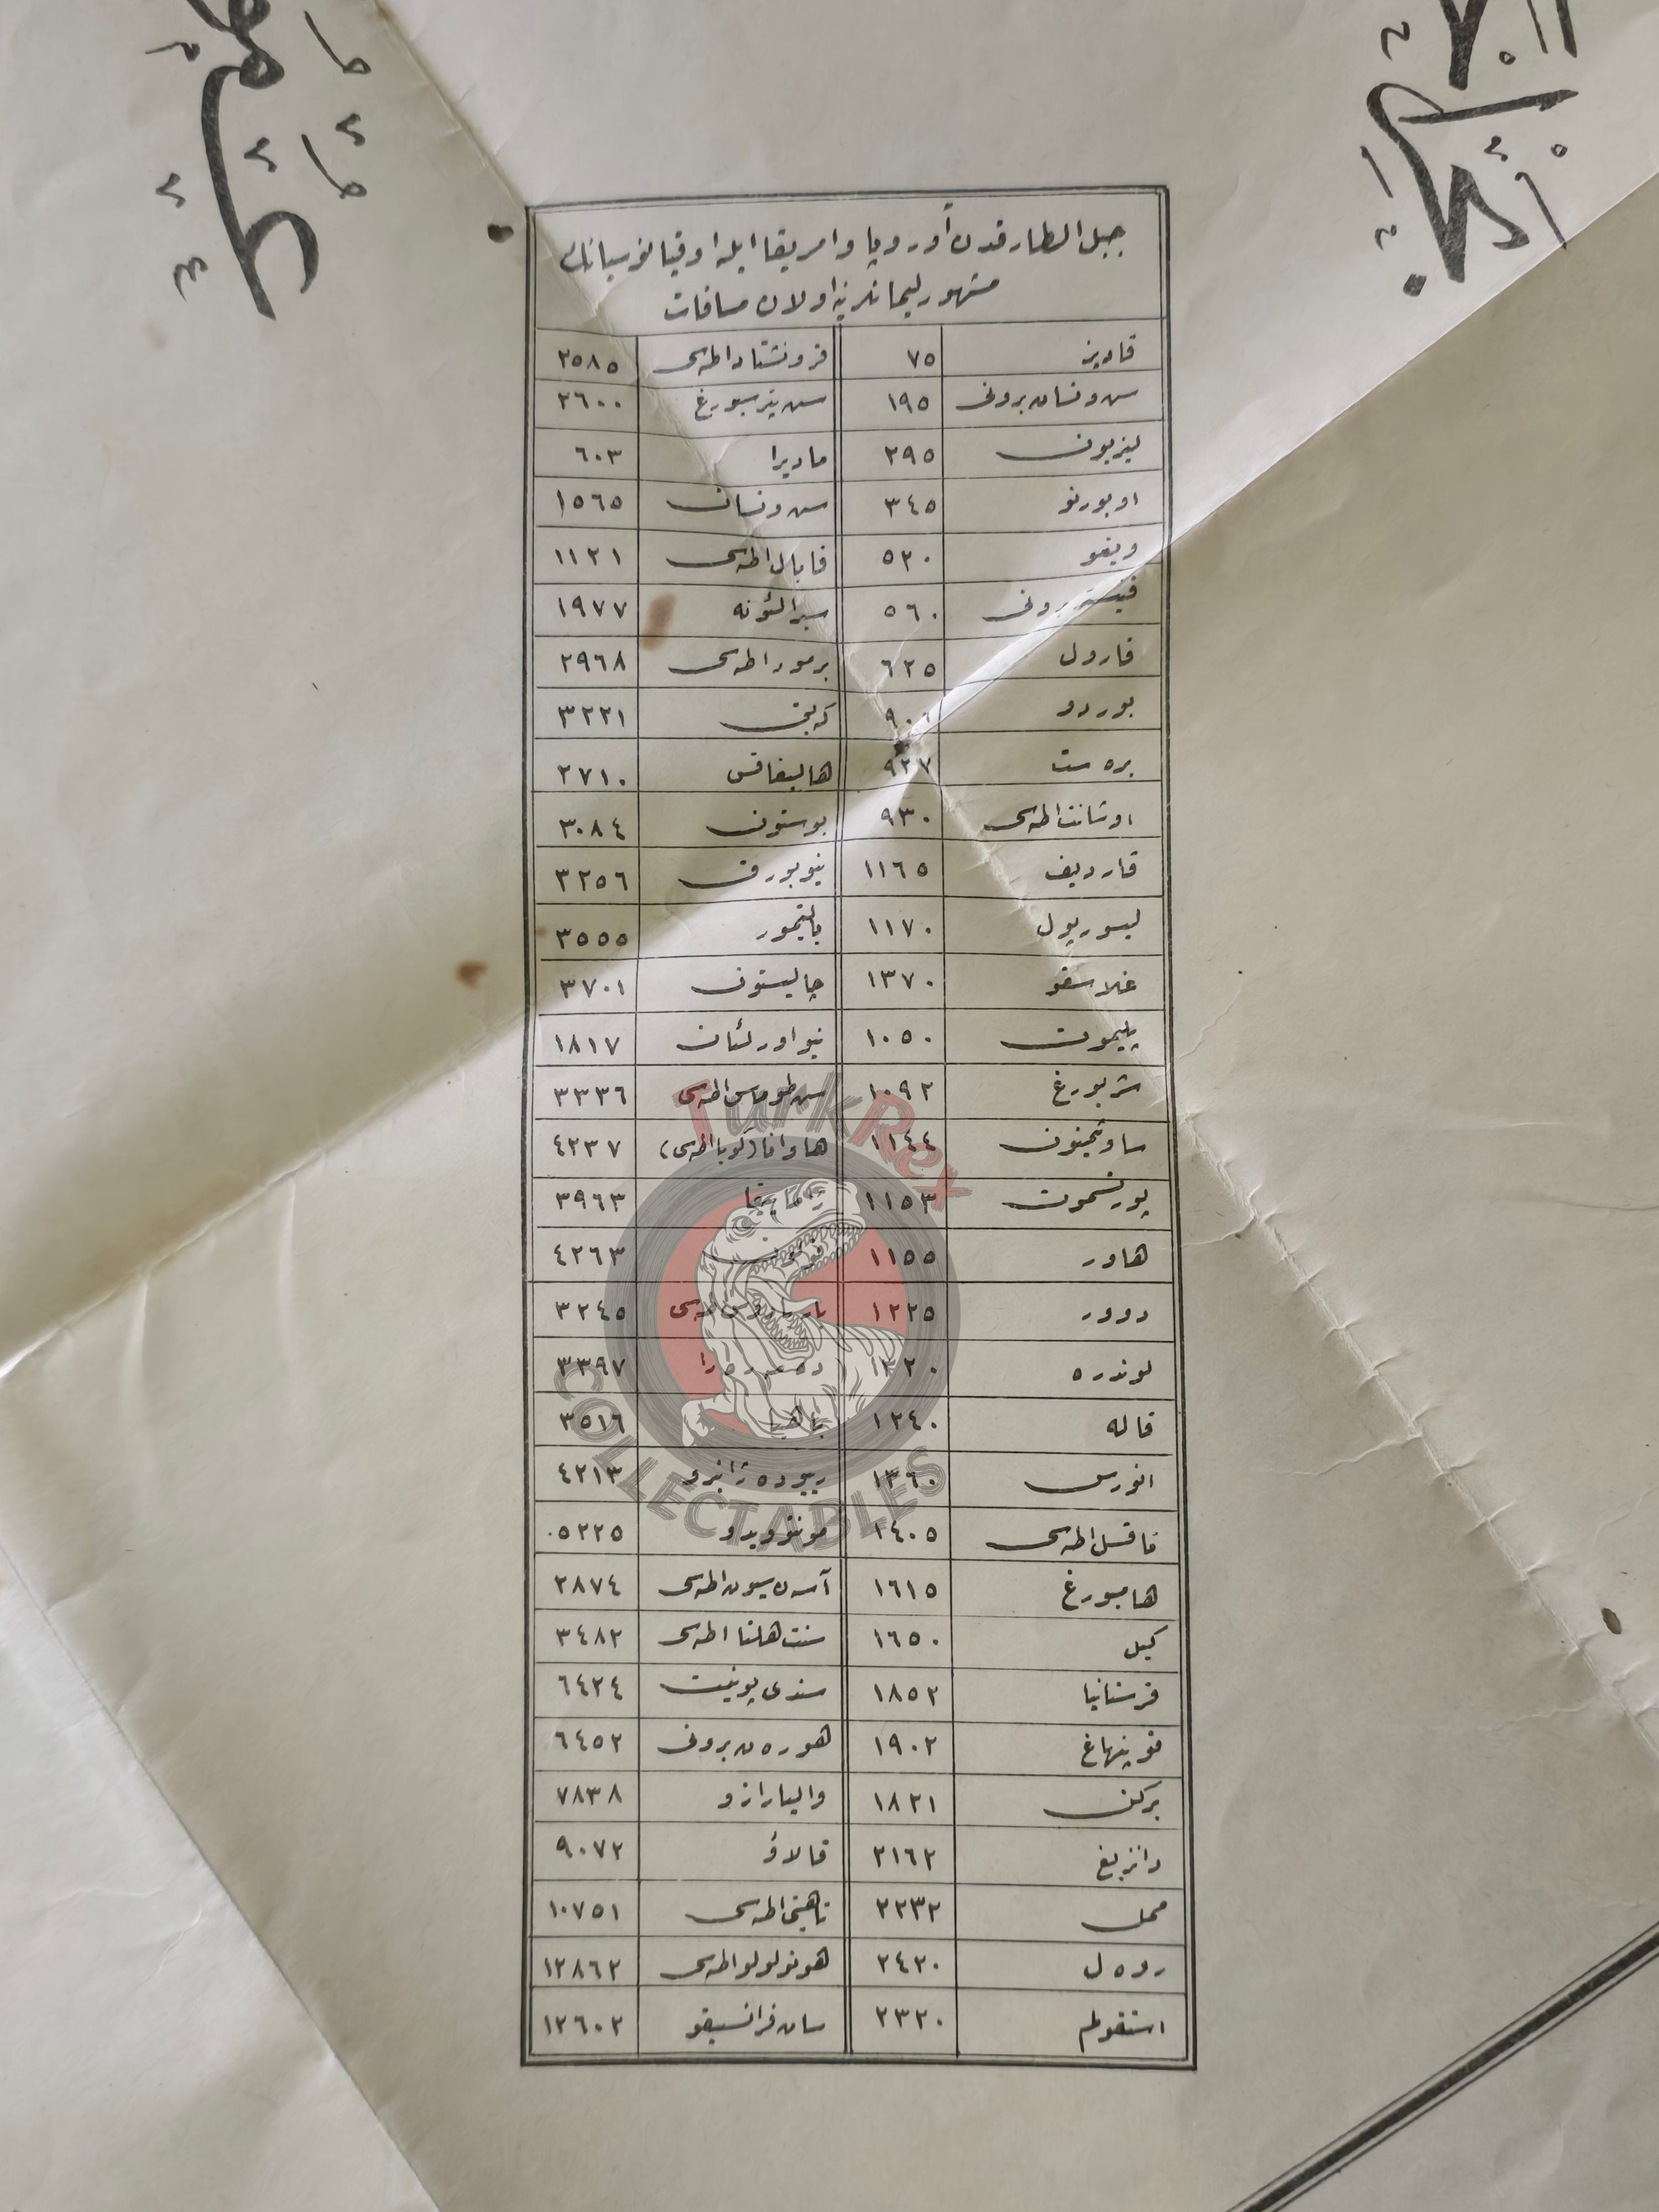 جبل الطارقدن آوروپا و امریقا ایله اوقیانوسیانك
مشهور لیمانلرینه اولان مسافات
قادیز ٧٥ قرونشتاد اطه‌سی ٢٥٨٥
سن ونسان برونی ١٩٥ سن پترسبورغ ٢٦٠٠
لیزبون ٢٩٥ مادیرا ٦٠٣
اوپورتو ٣٤٥ سن ونسان ١٥٦٥
ویغو ٥٢٠ قابال اطه‌سی ١١٢١
فنیستر برونی ٥٦٠ سیرالئونه ١٩٧٧
فارول ٦٢٥ برمود اطه‌سی ٢٩٦٨
بوردو كه‌بق ٣٢٢١
بره‌ست ٩٢٧ هالیفاقس ٢٧١٠
اوشانت اطه‌سی ٩٣٠ بوستون ٣٠٨٤
قاردیف ١١٦٥ نیویورق ٣٢٥٦
لیورپول ١١٧٠ بالتیمور ٣٥٥٥
غلاسقو ١٣٧٠ چالیستون ٣٧٠١
پلیموت ١٠٥٠ نیو اورلئان ١٨١٧
شربورغ ١٠٩٢ سن طوماس اطه‌سی ٣٣٣٦
ساوتمپتون ١١٤٤ هاوانا (كوبا اطه‌سی) ٤٢٣٧
پورتسموت ١١٥٣ ژاماییقا ٣٩٦٣
هاور ١١٥٥ ٤٢٦٣
دوور ١٢٢٥ باربادوس اطه‌سی ٣٢٤٥
لوندره ١٢٢٠ ٣٣٩٧
قاله ١٢٤٠ باهیا ٣٥١٦
انورس ١٣٦٠ ریوده ژانیرو ٤٢١٣
تاقسل اطه‌سی ١٤٠٥ مونتویدو ٥٢٢٥
هامبورغ ١٦١٥ آسه‌نسیون اطه‌سی ٢٨٧٤
كیل ١٦٥٠ سنت هلنا اطه‌سی ٣٤٨٢
قرستانیا ١٨٥٢ سندی پوینت ٦٤٢٤
قوپنهاغ ١٩٠٢ هورن برونی ٦٤٥٢
بركن ١٨٢١ والپارازو ٧٨٣٨
دانزیغ ٢١٦٢ قالاؤ ٩٠٧٢
ممل ٢٢٣٢ تاهیتی اطه‌سی ١٠٧٥١
ره‌وه‌ل ٢٤٢٠ هونولولو اطه‌سی ١٢٨٦٢
استقولم ٢٣٢٠ سان فرانسیسقو ١٢٦٠٢
TurkRex
COLLECTABLES